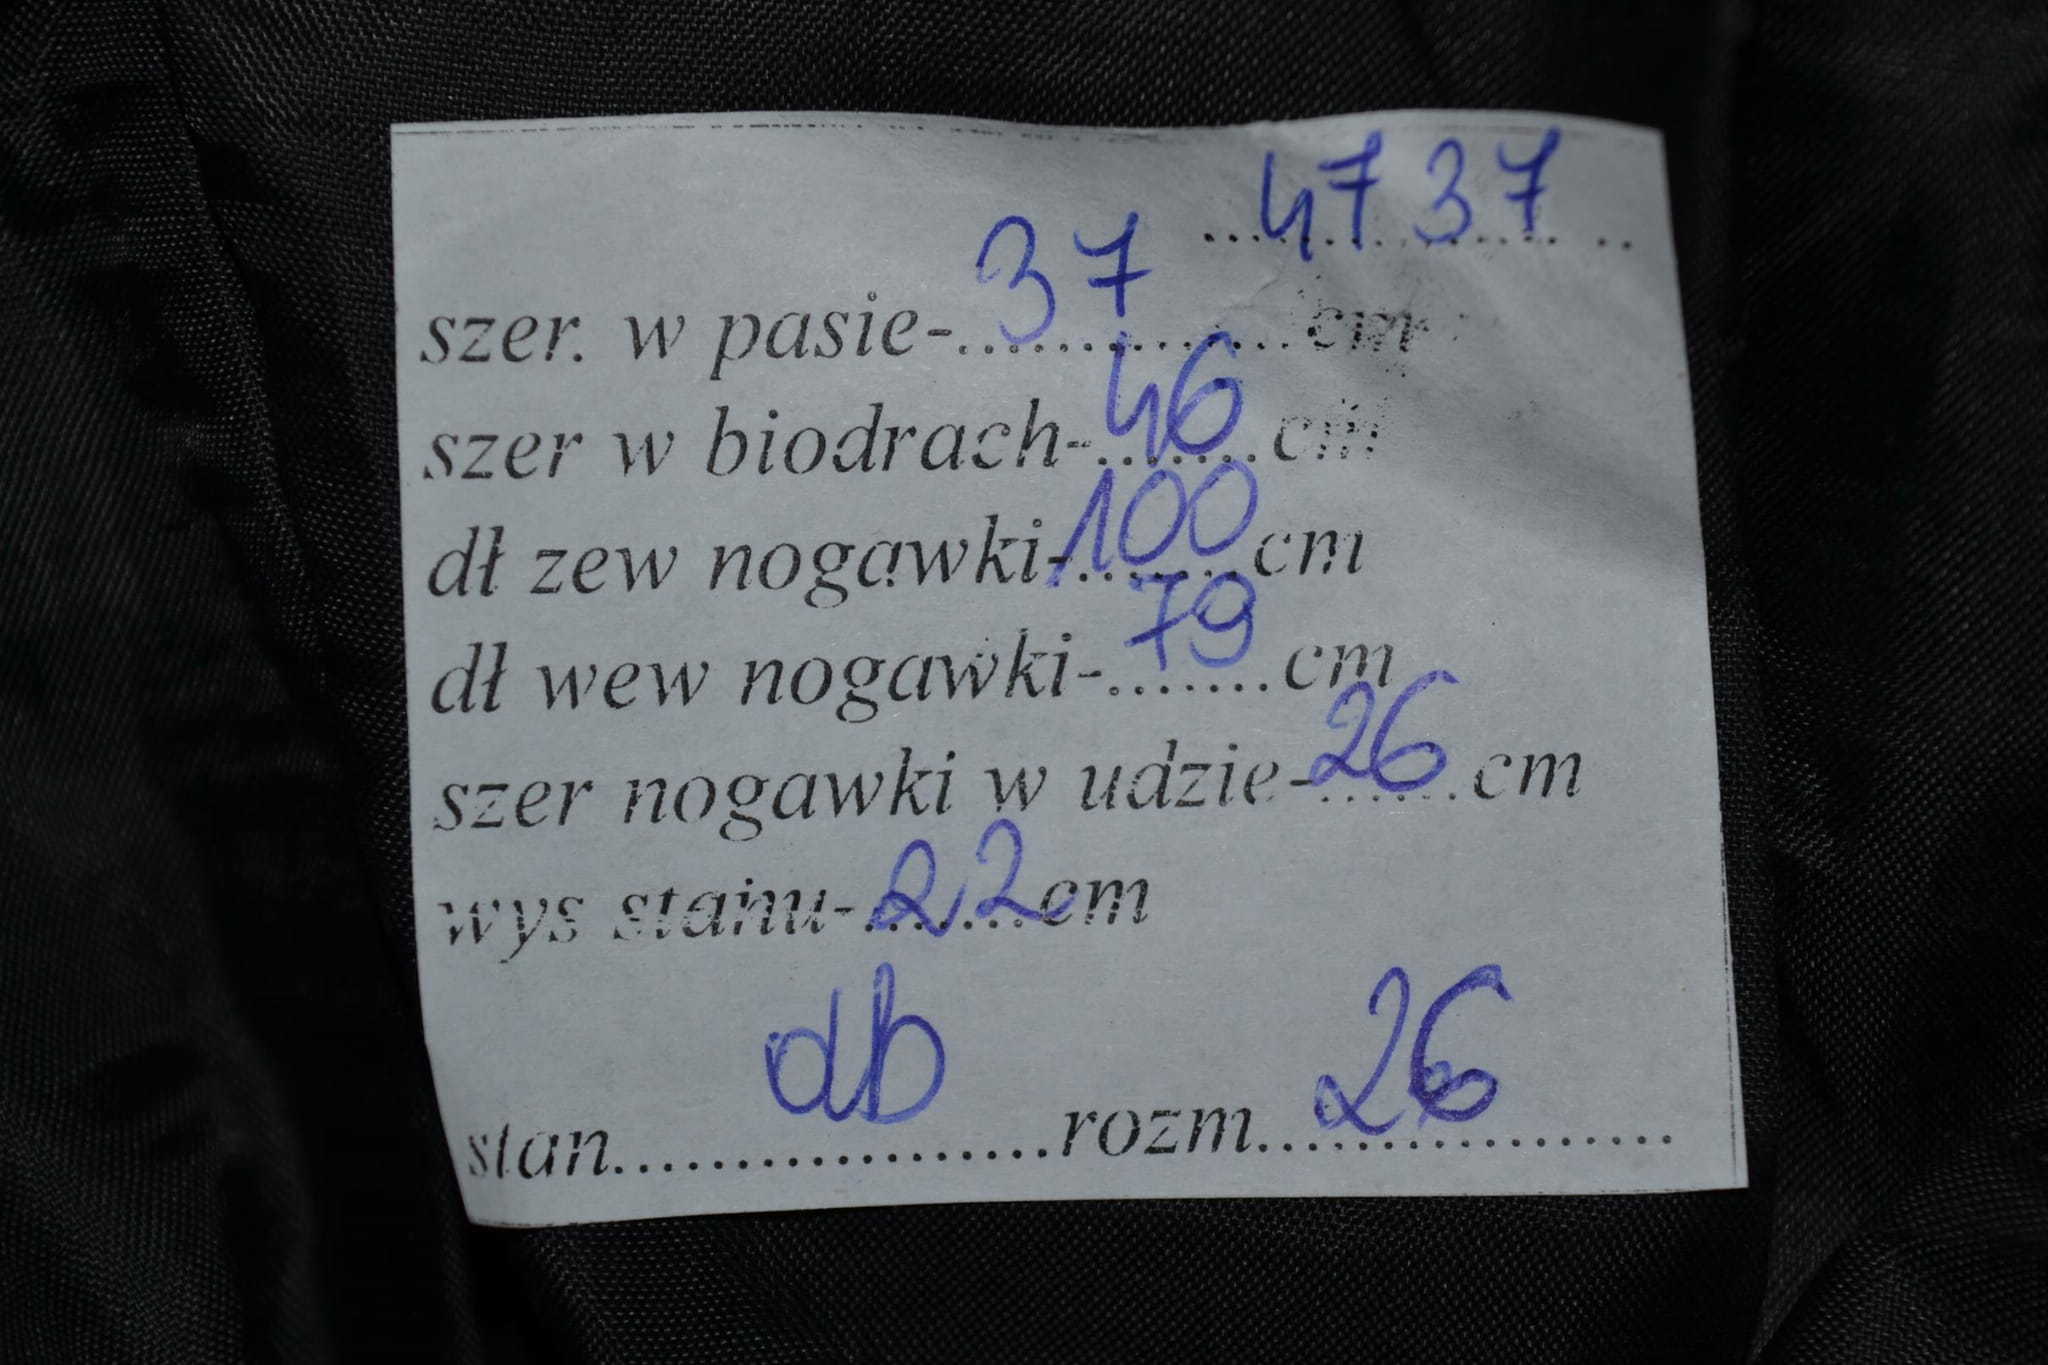 ...4737.....
szer. w pasie-...37...cm
szer w biodrach-...46...cm
dł zew nogawki-...100...cm
dł wew nogawki-...79...cm
szer nogawki w udzie-...26...cm
wys stanu-...22...cm
stan...db...rozm...26...